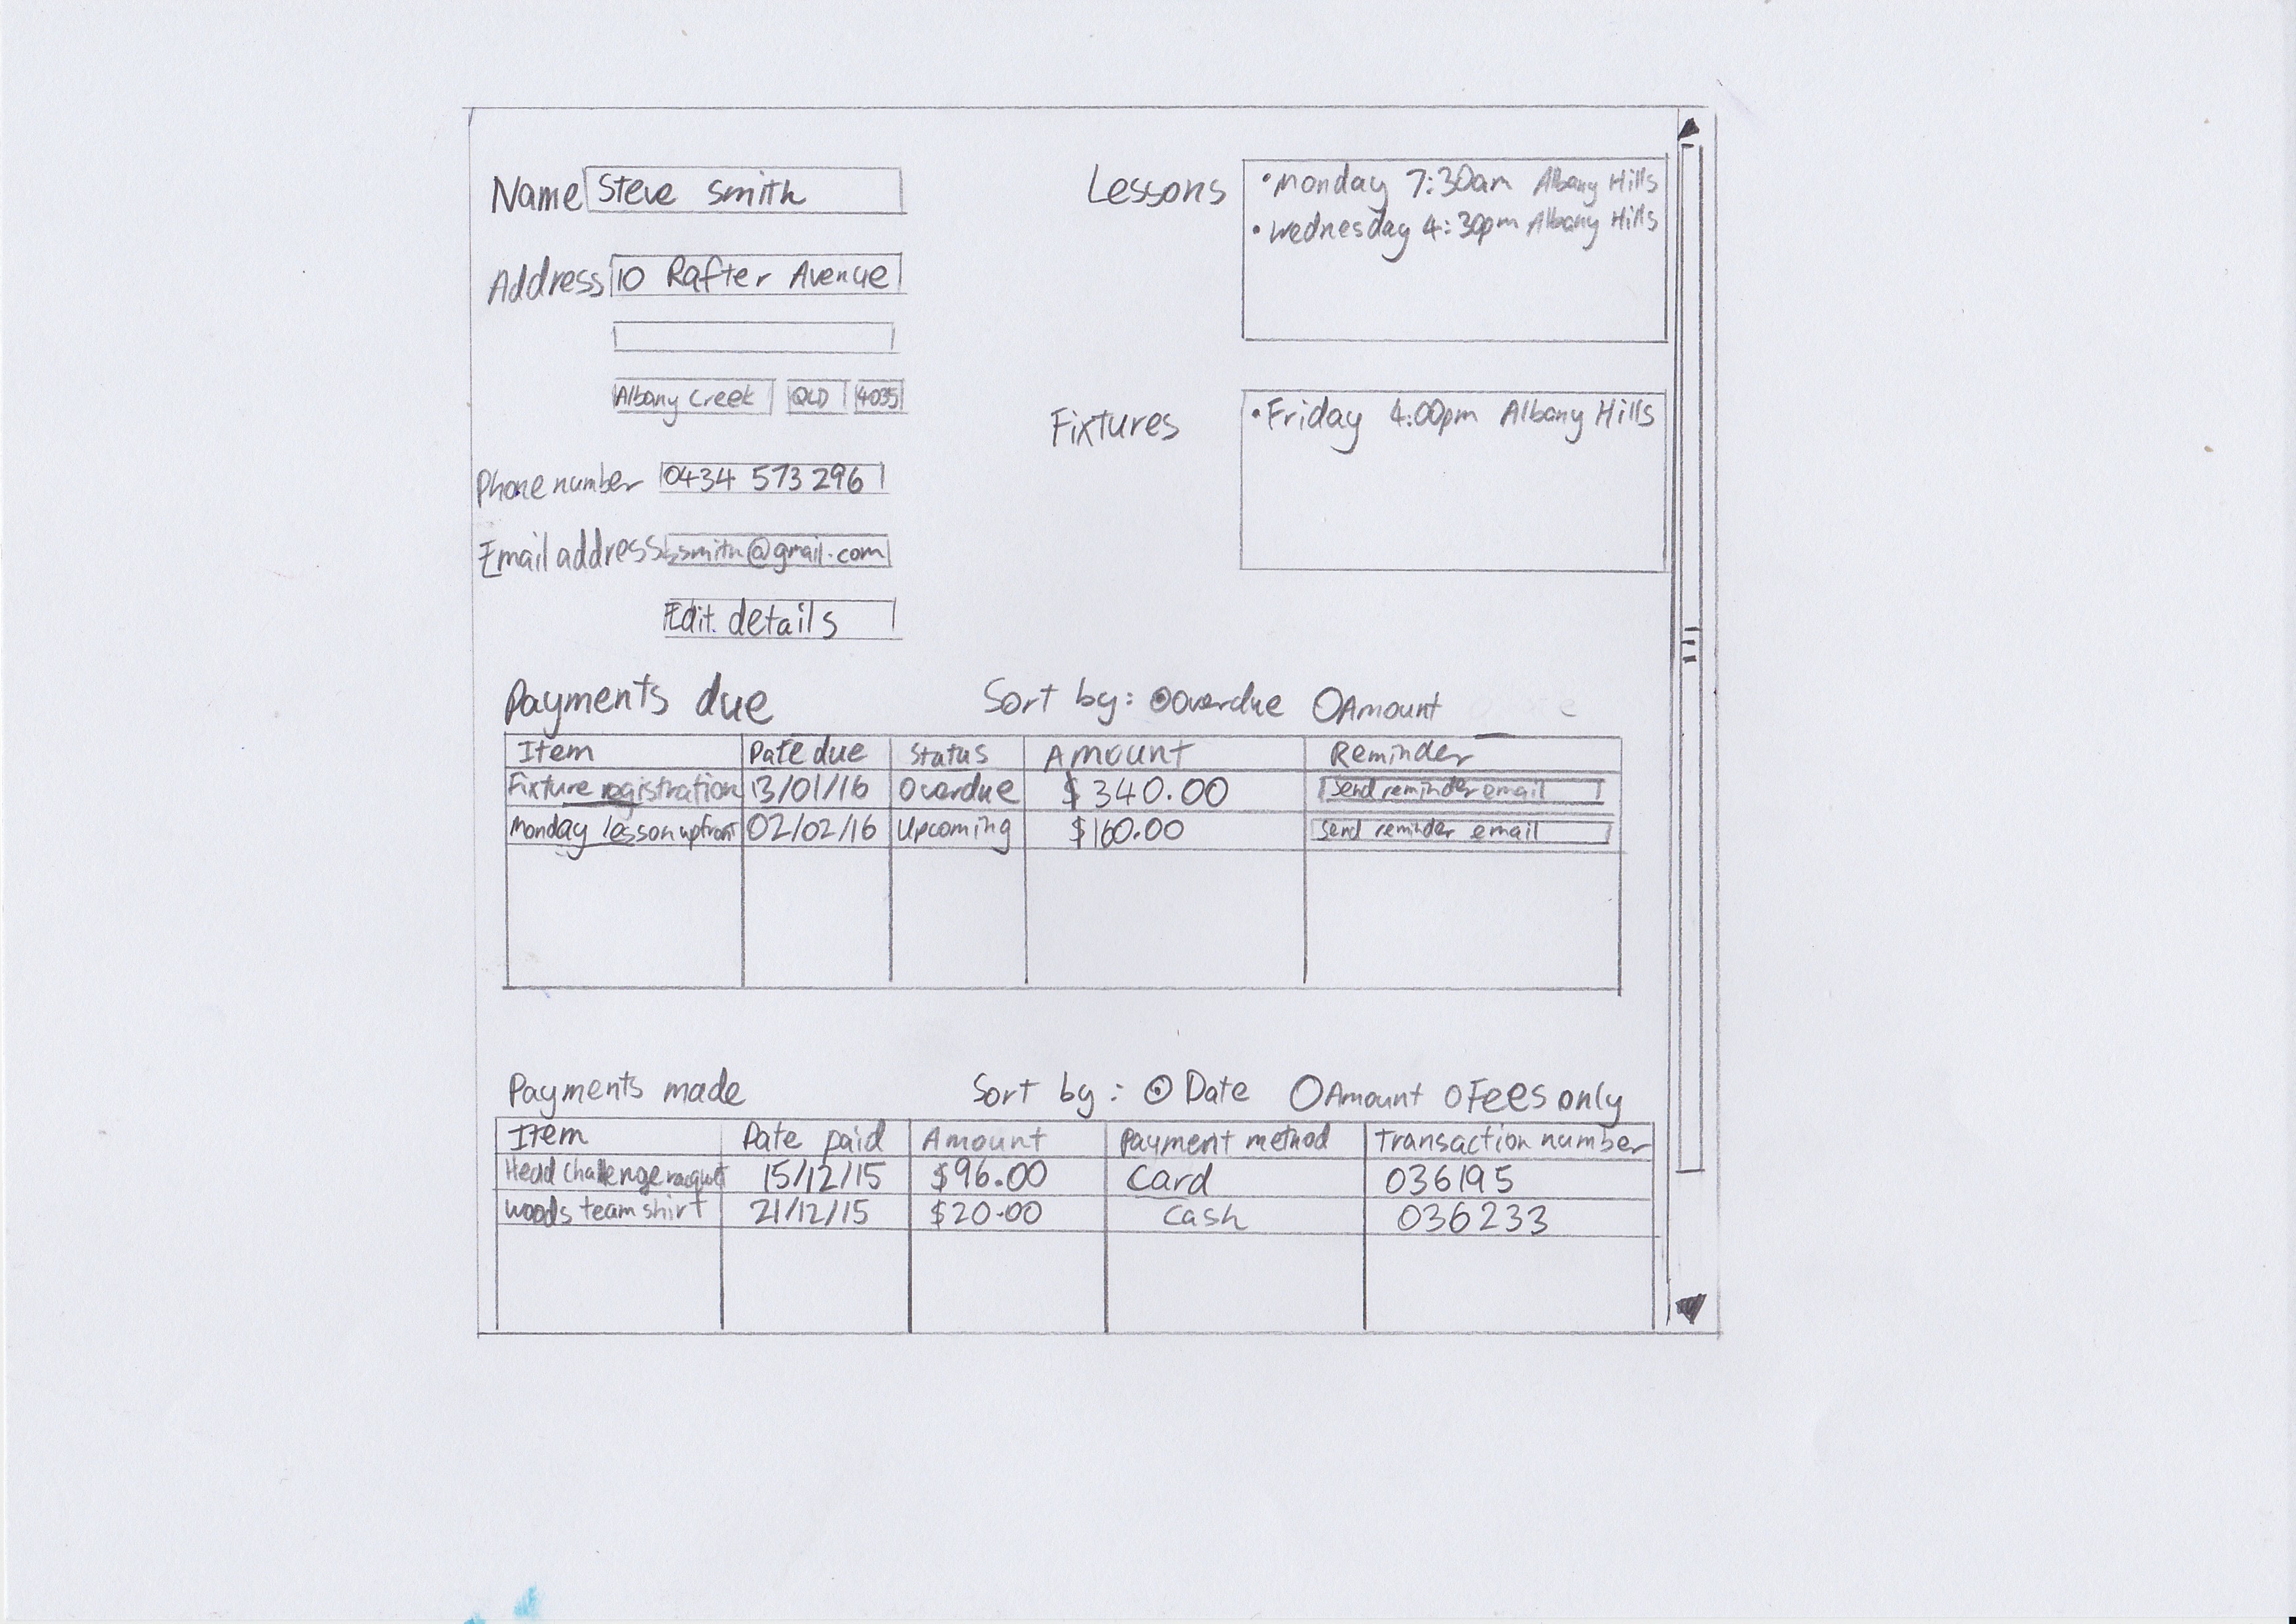 Name Steve Smith
Address 10 Rafter Avenue
Albany Creek QLD 4035
Phone number 0434 573 296
Email address ssmith@gmail.com
Edit details
Lessons
• Monday 7:30am Albany Hills
• Wednesday 4:30pm Albany Hills
Fixtures
• Friday 4:00pm Albany Hills
Payments due Sort by: Overdue Amount
Item Date due Status Amount Reminder
Fixture registration 13/01/16 Overdue $340.00 Send reminder email
Monday lesson upfront 02/02/16 Upcoming $160.00 Send reminder email
Payments made Sort by: Date Amount Fees only
Item Date paid Amount Payment method Transaction number
Head challenge racquet 15/12/15 $96.00 Card 036195
Woods team shirt 21/12/15 $20.00 Cash 036233